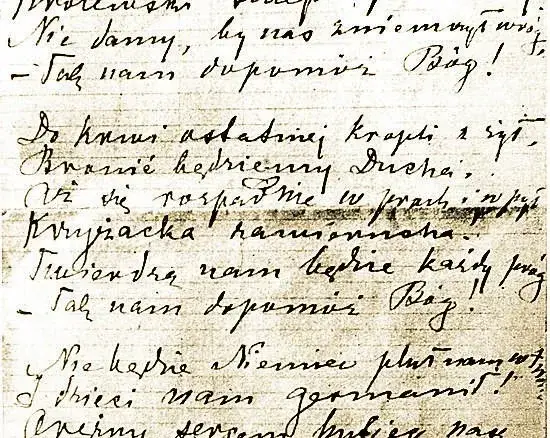 Królewski szczep
Nie damy, by nas zniemczył wróg,
– Tak nam dopomóż Bóg!
Do krwi ostatniej kropli z żył,
Bronić będziemy Ducha.
Aż się rozpadnie w proch i w pył
Krzyżacka zawierucha.
Twierdzą nam będzie każdy próg
– Tak nam dopomóż Bóg!
Nie będzie Niemiec pluł nam w twarz
I dzieci nam germanił!
Orężny